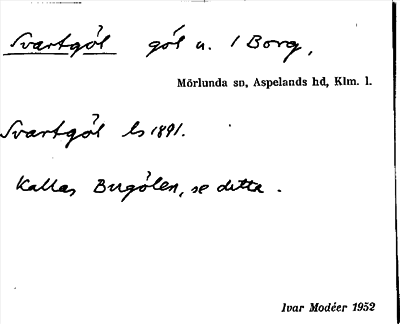 Svartgöl göl u. 1 Borg,
Mörlunda sn, Aspelands hd, Klm. l.
Svartgöl ls 1891.
Kallas Bugölen, se detta.
Ivar Modéer 1952